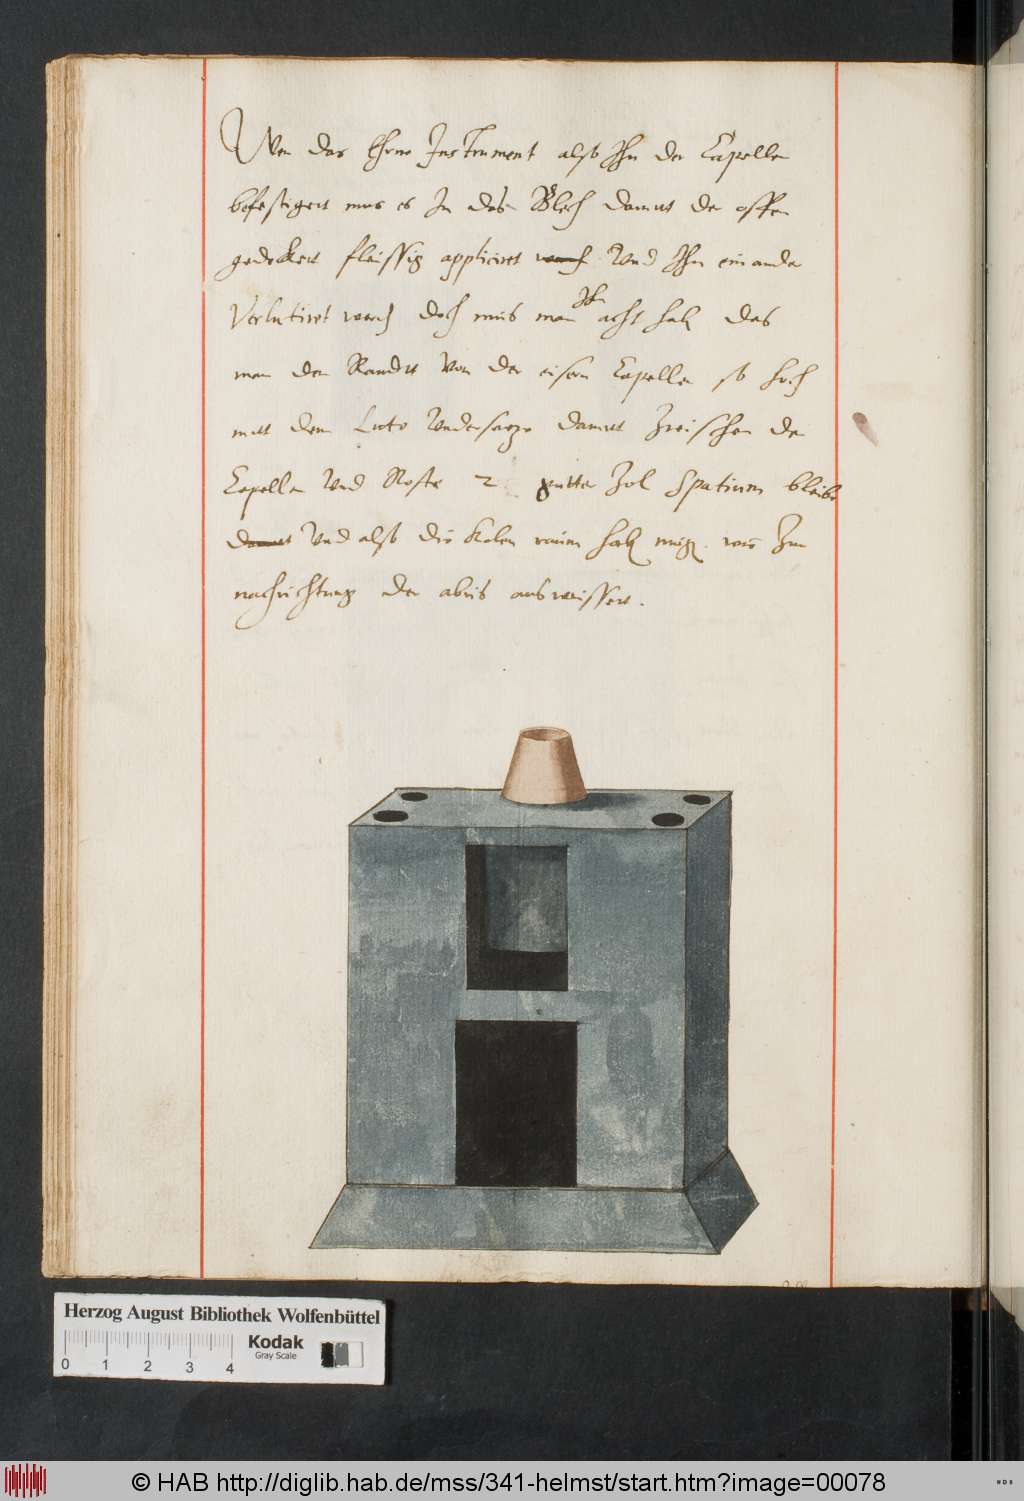 Wen das Ehrne Instrument also Ihn der Capellen
befestiget mus es In das Blech damit der offen
gedecket fleissig appliciret werdtt Und Ihn einander
Verlutiret werdt doch mus man Ihn acht hab das
man den Randtt Von der eisern Capellen so hoch
mitt dem Luto Undersaeze damitt Zwischen der
Capellen Und Roste 2 gutte Zol Spatium bleibe
damit Und also die Kolen raum hab mög. wie Zur
nachrichtung der abris ausweisset.
Herzog August Bibliothek Wolfenbüttel
0 1 2 3 4
Kodak
Gray Scale
© HAB http://diglib.hab.de/mss/341-helmst/start.htm?image=00078